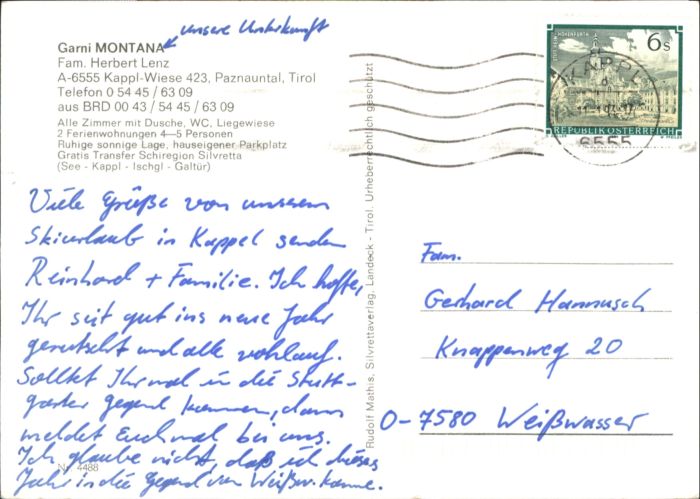 unsere Unterkunft
Garni MONTANA
Fam. Herbert Lenz
A-6555 Kappl-Wiese 423, Paznauntal, Tirol
Telefon 0 54 45 / 63 09
aus BRD 00 43 / 54 45 / 63 09
Alle Zimmer mit Dusche, WC, Liegewiese
2 Ferienwohnungen 4—5 Personen
Ruhige sonnige Lage, hauseigener Parkplatz
Gratis Transfer Schiregion Silvretta
(See - Kappl - Ischgl - Galtür)
Viele Grüße von unserem
Skiurlaub in Kappel senden
Reinhard + Familie. Ich hoffe,
Ihr seit gut ins neue Jahr
gerutscht und alle wohlauf.
Solltet Ihr mal in die Stutt-
garter Gegend kommen, dann
meldet Euch mal bei uns.
Ich glaube nicht, daß ich dieses
Jahr in die Gegend von Weißw. komme.
Nr. 4488
Rudolf Mathis, Silvrettaverlag, Landeck - Tirol. Urheberrechtlich geschützt
STIFT REIN-HOHENFURTH
6 S
REPUBLIK ÖSTERREICH
KAPPL
6555
Fam.
Gerhard Hannusch
Knappenweg 20
O-7580 Weißwasser